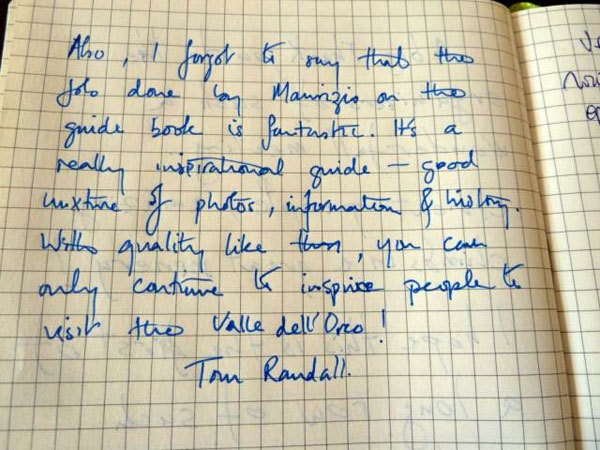 Also, I forgot to say that the
job done by Maurizio on the
guide book is fantastic. It's a
really inspirational guide — good
mixture of photos, information & history.
With quality like this, you can
only continue to inspire people to
visit the Valle dell'Orco!
Tom Randall.